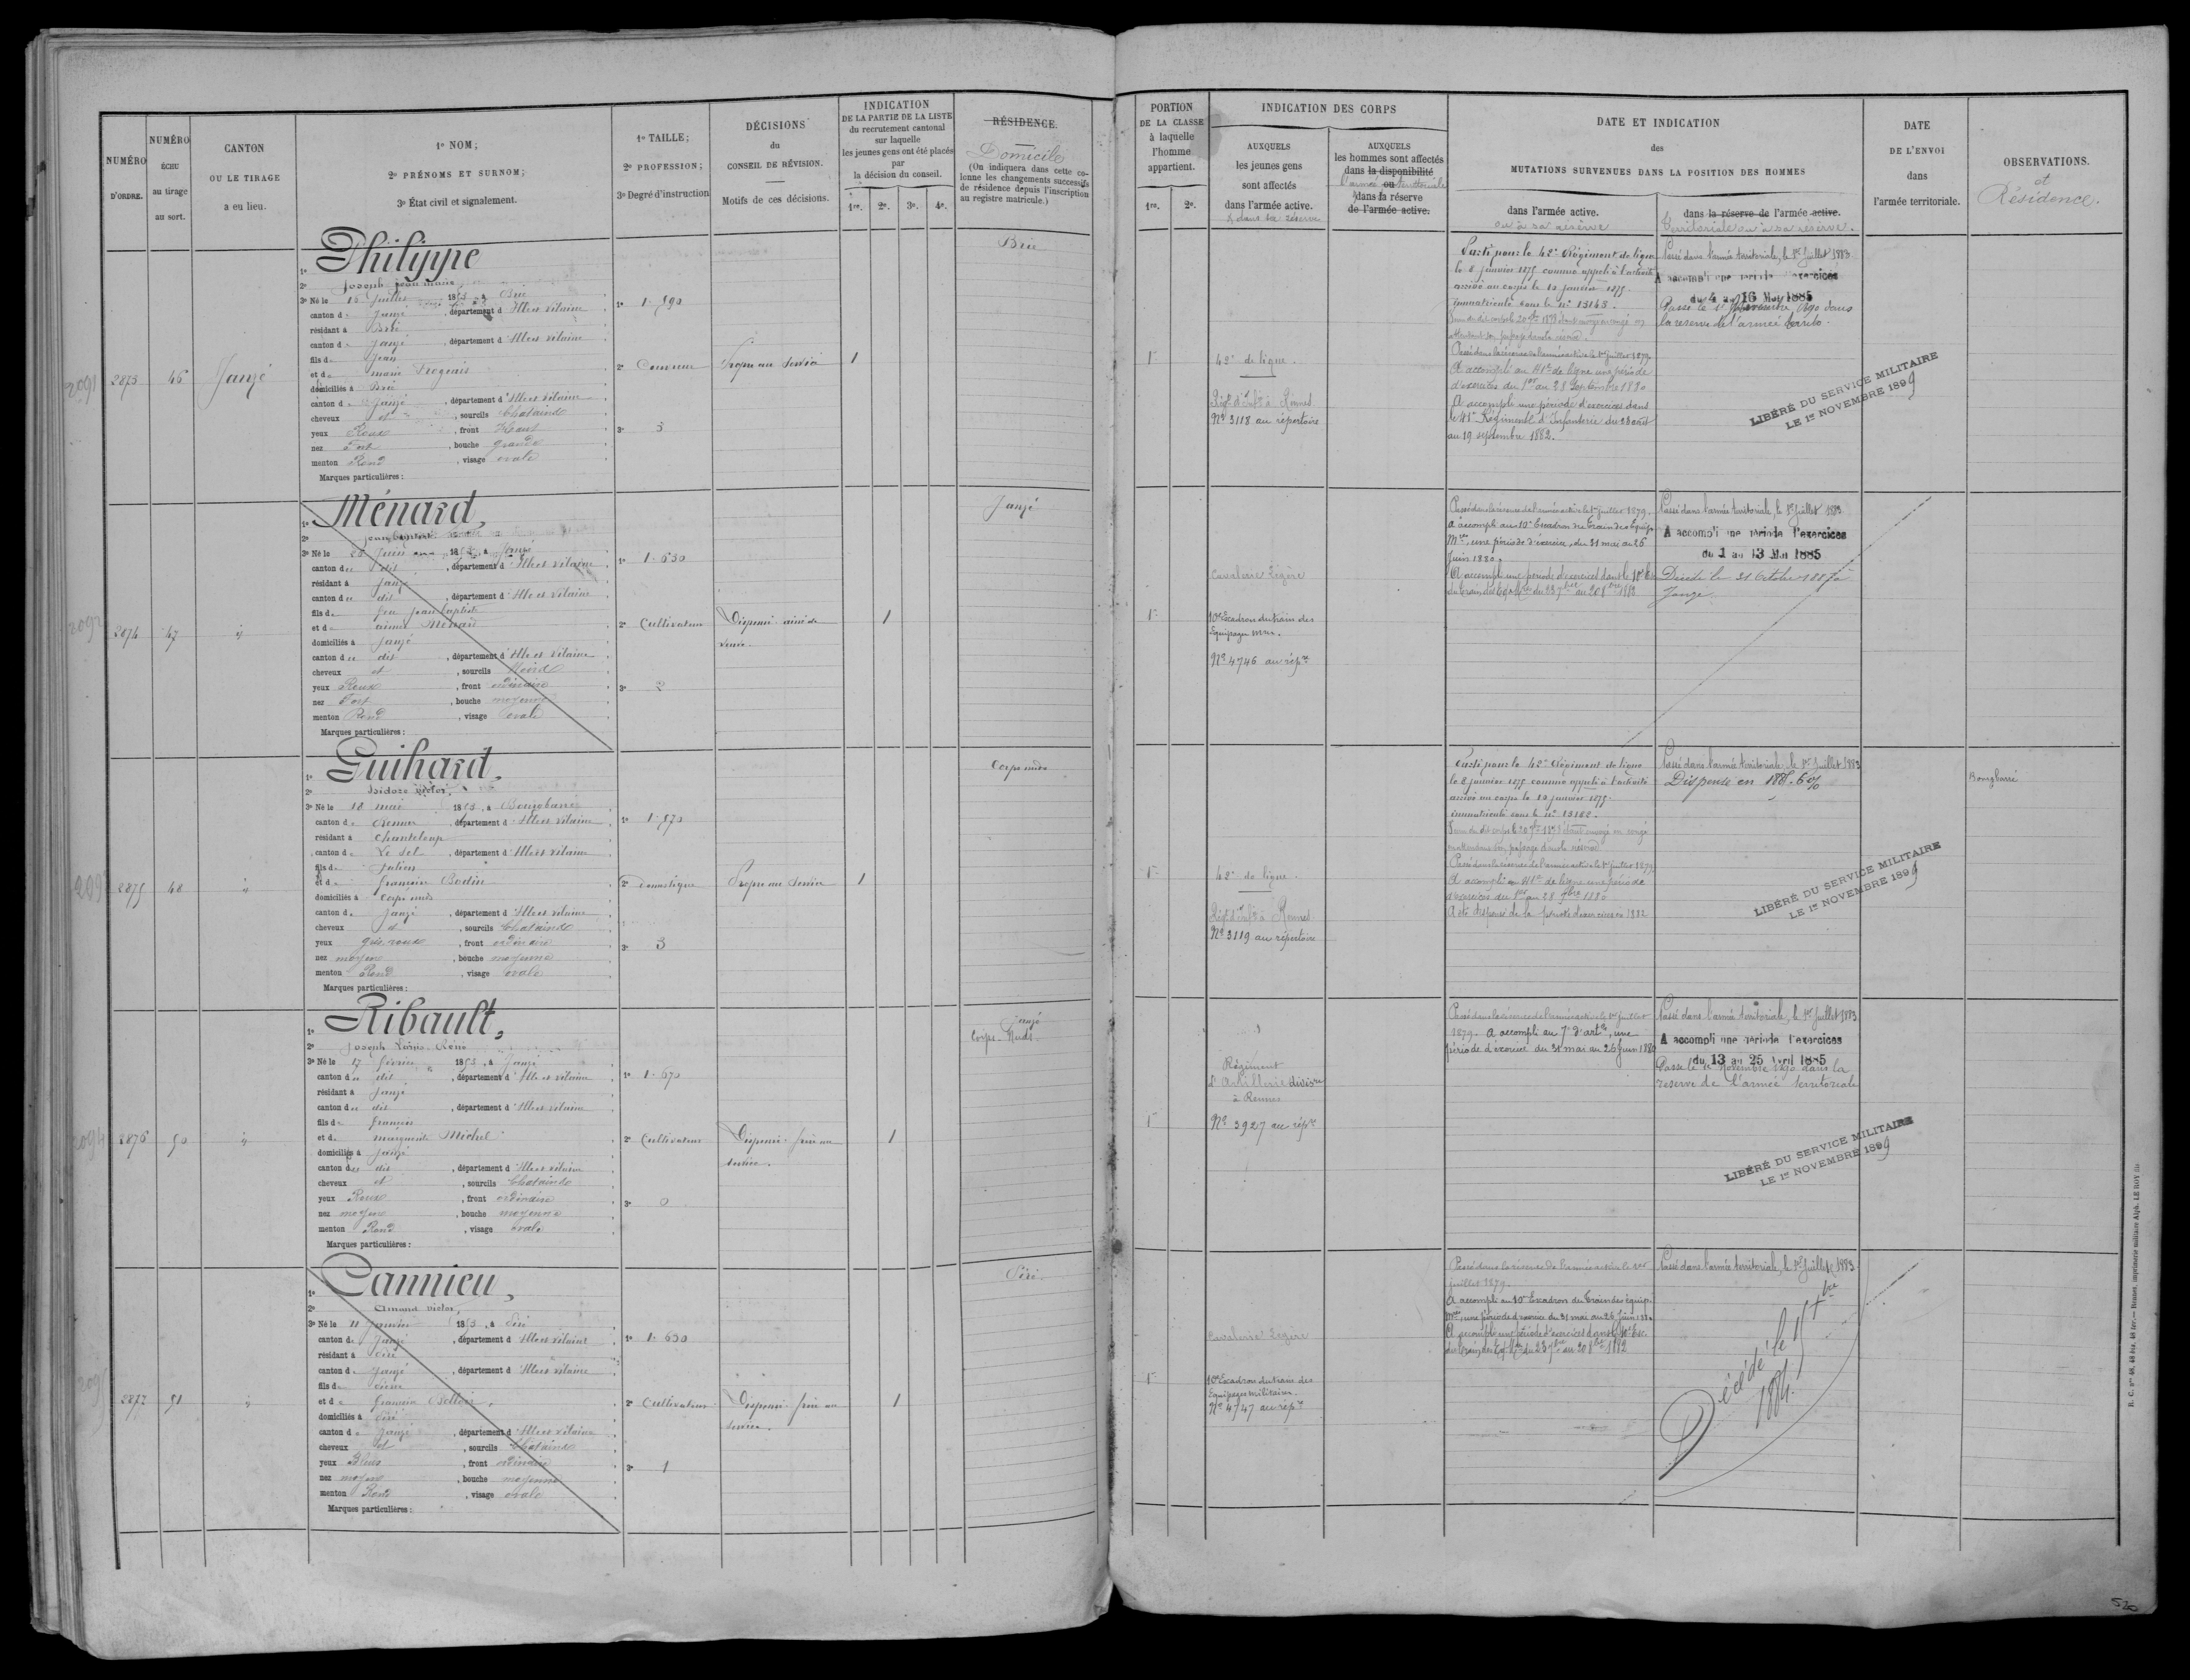 NUMÉRO
D'ORDRE.
NUMÉRO
ÉCHU
au tirage
au sort.
CANTON
OU LE TIRAGE
a eu lieu.
1º NOM;
2º PRÉNOMS ET SURNOM;
3º État civil et signalement.
1º TAILLE;
2º PROFESSION;
3º Degré d'instruction
DÉCISIONS
du
CONSEIL DE RÉVISION.
Motifs de ces décisions.
INDICATION
DE LA PARTIE DE LA LISTE
du recrutement cantonal
sur laquelle
les jeunes gens ont été placés
par
la décision du conseil.
1re. 2e. 3e. 4e.
RÉSIDENCE.
Domicile
(On indiquera dans cette co-
lonne les changements successifs
de résidence depuis l'inscription
au registre matricule.)
PORTION
DE LA CLASSE
à laquelle
l'homme
appartient.
1re. 2e.
INDICATION DES CORPS
AUXQUELS
les jeunes gens
sont affectés
dans l'armée active.
& dans sa réserve
AUXQUELS
les hommes sont affectés
dans la disponibilité
l'armée ou territoriale
dans la réserve
de l'armée active.
DATE ET INDICATION
des
MUTATIONS SURVENUES DANS LA POSITION DES HOMMES
dans l'armée active.
ou à sa réserve
dans la réserve de l'armée active.
territoriale ou à sa réserve.
DATE
DE L'ENVOI
dans
l'armée territoriale.
OBSERVATIONS.
et
Résidence.
2091
2873
46
Janzé
1º Philippe
2º Joseph Jean Marie
3º Né le 15 Juillet 1853, à Brie
canton de Janzé, département d'Ille et Vilaine
résidant à Brie
canton de Janzé, département d'Ille et Vilaine
fils de Jean
et de Marie
domiciliés à Brie
canton de Janzé, département d'Ille et Vilaine
cheveux et, sourcils Chatains
yeux Roux, front Haut
nez Fort, bouche grande
menton Rond, visage ovale
Marques particulières :
1º 1.590
2º Couvreur
3º 3
Propre au Service
1
Brie
1re
42e de ligne.
Régt d'Infie à Rennes
Nº 3118 au répertoire
Parti pour le 42e Régiment de ligne
le 8 janvier 1875 comme appelé à l'activité
arrivé au corps le 10 janvier 1875.
immatriculé sous le nº 13143.
Passé dans la réserve de l'armée active le 1er Juillet 1879
A accompli au 41e de ligne une période
d'exercices du 1er au 28 Septembre 1880
A accompli une période d'exercices dans
le 41e Régiment d'Infanterie du 23 août
au 19 septembre 1882.
Passé dans l'armée territoriale, le 1er Juillet 1883
A accompli une période d'exercices
du 4 au 16 Mai 1885
Passé le 1er Novembre 1890 dans
la réserve de l'armée territo.
LIBÉRÉ DU SERVICE MILITAIRE
LE 1er NOVEMBRE 1899
2092
2874
47
"
1º Ménard,
2º Jean Baptiste
3º Né le 28 Juin 1853, à Janzé
canton du dit, département d'Ille et Vilaine
résidant à Janzé
canton du dit, département d'Ille et Vilaine
fils de feu Jean Baptiste
et de aimée Ménard
domiciliés à Janzé
canton du dit, département d'Ille et Vilaine
cheveux et, sourcils Noirs
yeux Roux, front ordinaire
nez Fort, bouche moyenne
menton Rond, visage ovale
Marques particulières :
1º 1.630
2º Cultivateur
3º 2
Dispensé ainé de
veuve.
1
Janzé
1re
Cavalerie Légère
10e Escadron du train des
Equipages mres.
Nº 4746 au répre
Passé dans la réserve de l'armée active le 1er Juillet 1879.
A accompli au 10e Escadron du Train des Equip.
Mres, une période d'exercices, du 31 mai au 26
Juin 1880.
A accompli une période d'exercices dans le 10e Esc.
du train des Eq. Mres du 23 7bre au 20 8bre 1882
Passé dans l'armée territoriale, le 1er Juillet 1883
A accompli une période d'exercices
du 1 au 13 Mai 1885
Décédé le 31 Octobre 1887 à
Janzé.
2093
2875
48
"
1º Guihard,
2º Isidore Victor,
3º Né le 18 mai 1853, à Bourgbarré
canton de Rennes, département d'Ille et Vilaine
résidant à Chanteloup
canton de Le Sel, département d'Ille et Vilaine
fils de Julien
et de françoise Bodin
domiciliés à Corps nuds
canton de Janzé, département d'Ille et Vilaine
cheveux et, sourcils Chatains
yeux gris roux, front ordinaire
nez moyen, bouche moyenne
menton Rond, visage ovale
Marques particulières :
1º 1.570
2º Domestique
3º 3
Propre au Service
1
Corps nuds
1re
42e de ligne.
Régt d'Infie à Rennes
Nº 3119 au répertoire
Parti pour le 42e Régiment de ligne
le 8 janvier 1875 comme appelé à l'activité
arrivé au corps le 10 janvier 1875.
immatriculé sous le nº 13182.
Passé dans la réserve de l'armée active le 1er Juillet 1879
A accompli au 41e de ligne une période
d'exercices du 1er au 28 7bre 1880
A été dispensé de la période d'exercices en 1882
Passé dans l'armée territoriale, le 1er Juillet 1883
Dispensé en 1885. 6%
LIBÉRÉ DU SERVICE MILITAIRE
LE 1er NOVEMBRE 1899
Bourgbarré
2094
2876
50
"
1º Ribault,
2º Joseph Louis René
3º Né le 17 février 1853, à Janzé
canton du dit, département d'Ille et Vilaine
résidant à Janzé
canton du dit, département d'Ille et Vilaine
fils de françois
et de marguerite Michel
domiciliés à Janzé
canton du dit, département d'Ille et Vilaine
cheveux et, sourcils Chatains
yeux Roux, front ordinaire
nez moyen, bouche moyenne
menton Rond, visage ovale
Marques particulières :
1º 1.670
2º Cultivateur
3º 0
Dispensé frère au
service.
1
Janzé
Corps-Nuds
1re
Régiment
d'Artillerie divisre
à Rennes
Nº 3927 au répre
Passé dans la réserve de l'armée active le 1er Juillet
1879. A accompli au 7e d'artie, une
période d'exercice du 31 mai au 26 Juin 1880
Passé dans l'armée territoriale, le 1er Juillet 1883
A accompli une période d'exercices
du 13 au 25 Avril 1885
Passé le 1er Novembre 1890 dans la
réserve de l'armée territoriale
LIBÉRÉ DU SERVICE MILITAIRE
LE 1er NOVEMBRE 1899
2095
2877
51
"
1º Cannieu,
2º Amand Victor,
3º Né le 11 Janvier 1853, à Piré
canton de Janzé, département d'Ille et Vilaine
résidant à Piré
canton de Janzé, département d'Ille et Vilaine
fils de Pierre
et de françoise
domiciliés à Piré
canton de Janzé, département d'Ille et Vilaine
cheveux et, sourcils Chatains
yeux Bleus, front ordinaire
nez moyen, bouche moyenne
menton Rond, visage ovale
Marques particulières :
1º 1.630
2º Cultivateur
3º 1
Dispensé frère au
service.
1
Piré
1re
Cavalerie Légère
10e Escadron du train des
Equipages militaires.
Nº 4747 au répre
Passé dans la réserve de l'armée active le 1er
juillet 1879.
A accompli au 10e Escadron du Train des équip.
Mres, une période d'exercices du 31 mai au 26 Juin 1880
A accompli une période d'exercices dans le 10e Esc.
du train des Eq. Mres du 23 7bre au 20 8bre 1882
Passé dans l'armée territoriale, le 1er Juillet 1883
Décédé le 15 Xbre
1884.
R. C. nos 48, 48 bis, 48 ter. — Rennes, imprimerie militaire Alph. LE ROY fils
520